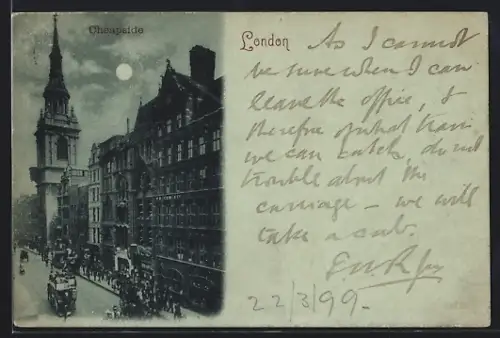 Cheapside
London
As I cannot
be sure when I can
leave the office, &
therefore of what train
we can catch, do not
trouble about the
carriage – we will
take a cab.
22/3/99.